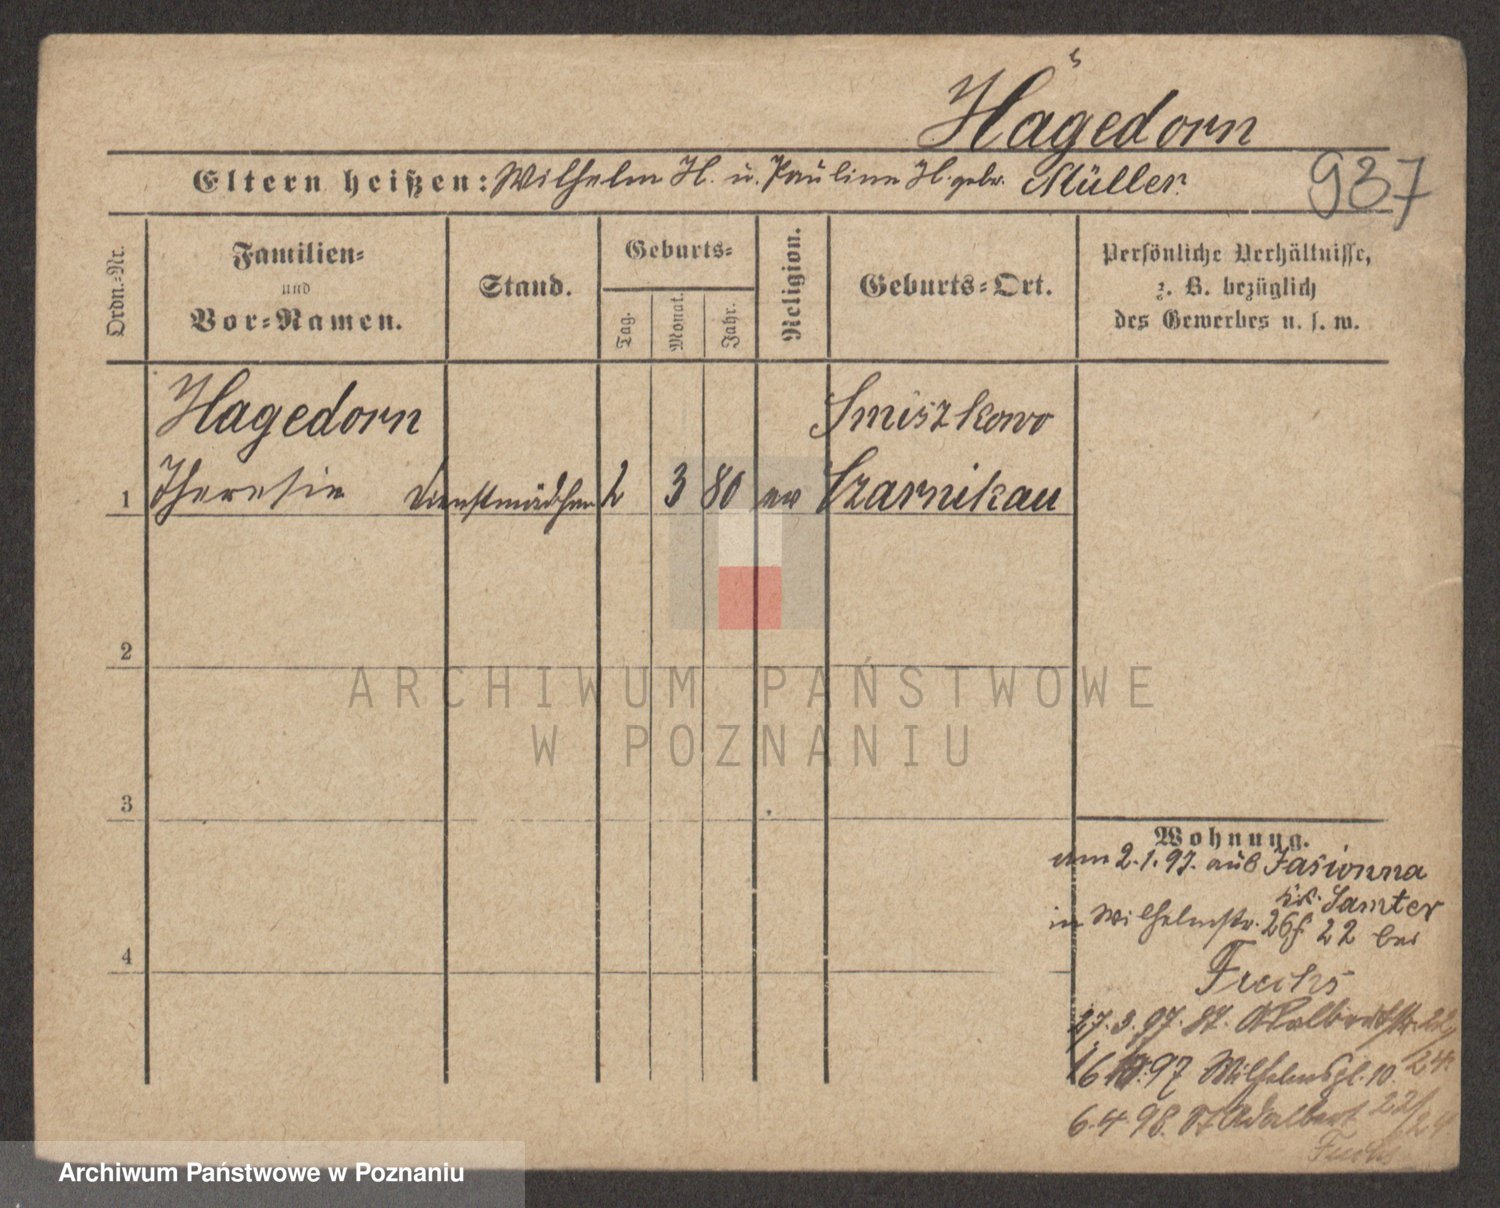 Hagedorn
937
Eltern heißen: Wilhelm H. u. Pauline H. gebr. Müller
Ordn.-Nr.
Familien-
und
Vor-Namen.
Stand.
Geburts-
Tag.
Monat.
Jahr.
Religion.
Geburts-Ort.
Persönliche Verhältnisse,
z. B. bezüglich
des Gewerbes u. s. w.
Hagedorn Smiszkowo
1 Theresie Dienstmädchen 2 3 80 ev Czarnikau
2
3
4
Wohnung.
am 2.1.97. aus Jasionna
Kr. Samter
in Wilhelmstr. 26 22 bei
Fuchs
27.3.97. St. Adalbertstr. 22/
24
16 97 Wilhelmspl. 10.
6.4 98. St Adalbert 22/24
Fuchs
ARCHIWUM PAŃSTWOWE
W POZNANIU
Archiwum Państwowe w Poznaniu